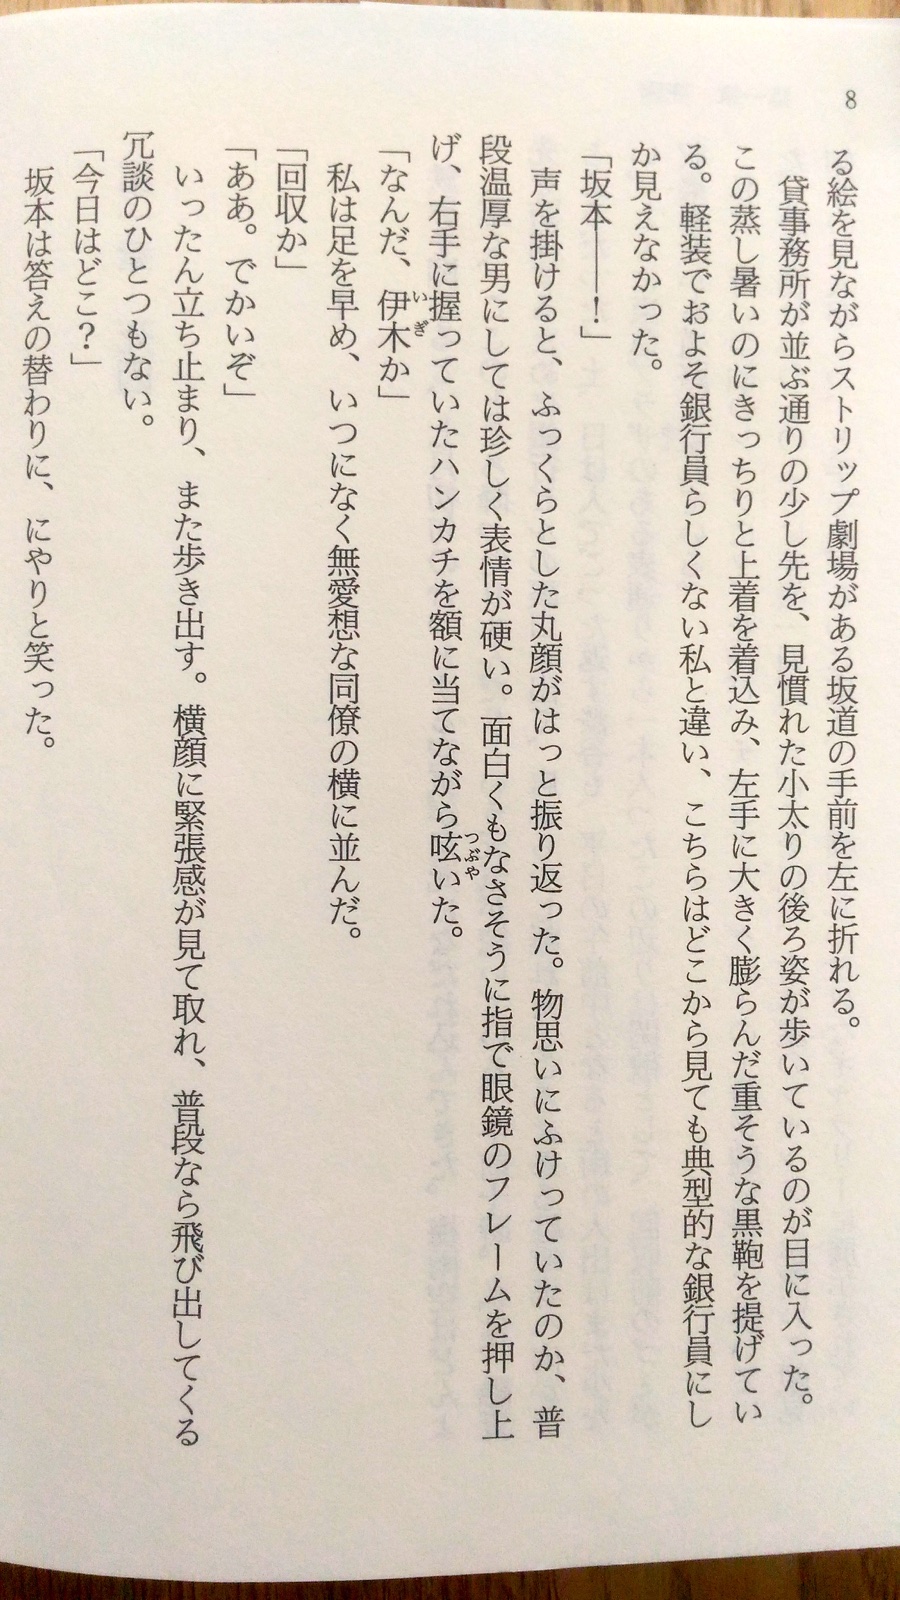 8
る絵を見ながらストリップ劇場がある坂道の手前を左に折れる。
貸事務所が並ぶ通りの少し先を、見慣れた小太りの後ろ姿が歩いているのが目に入った。
この蒸し暑いのにきっちりと上着を着込み、左手に大きく膨らんだ重そうな黒鞄を提げてい
る。軽装でおよそ銀行員らしくない私と違い、こちらはどこから見ても典型的な銀行員にし
か見えなかった。
「坂本――！」
声を掛けると、ふっくらとした丸顔がはっと振り返った。物思いにふけっていたのか、普
段温厚な男にしては珍しく表情が硬い。面白くもなさそうに指で眼鏡のフレームを押し上
げ、右手に握っていたハンカチを額に当てながら呟いた。
「なんだ、伊木か」
私は足を早め、いつになく無愛想な同僚の横に並んだ。
「回収か」
「ああ。でかいぞ」
いったん立ち止まり、また歩き出す。横顔に緊張感が見て取れ、普段なら飛び出してくる
冗談のひとつもない。
「今日はどこ？」
坂本は答えの替わりに、にやりと笑った。